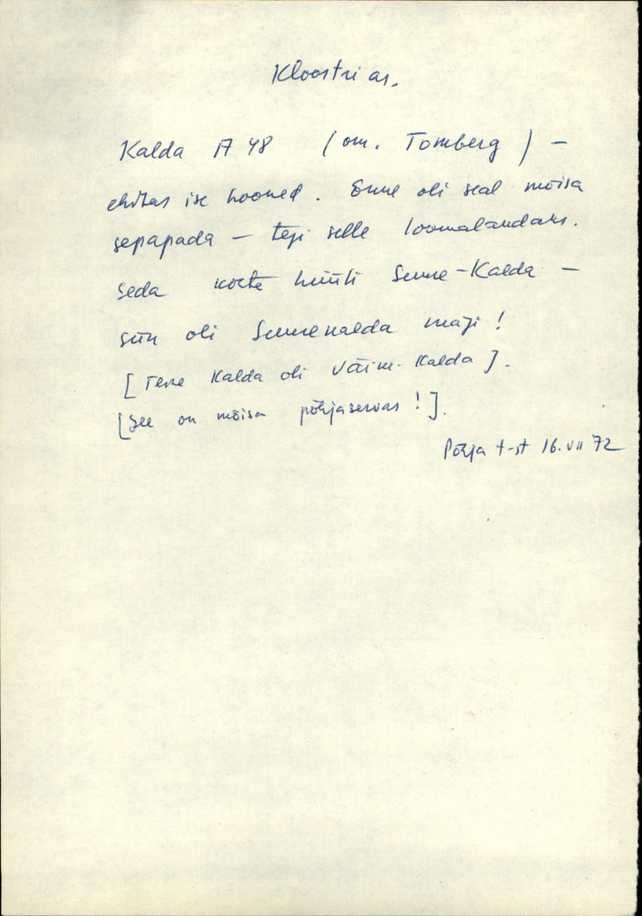 Kloostri as.
Kalda A 48 (om. Tomberg) –
ehitas ise hooned. Enne oli seal mõisa
sepapada – tegi selle loomalaudaks.
Seda kohta hüüti Suure-Kalda –
siin oli Suurekalda maji!
[Teine Kalda oli Väike-Kalda].
[See on mõisa põhjaservas!].
Põhja t-st 16.VII 72